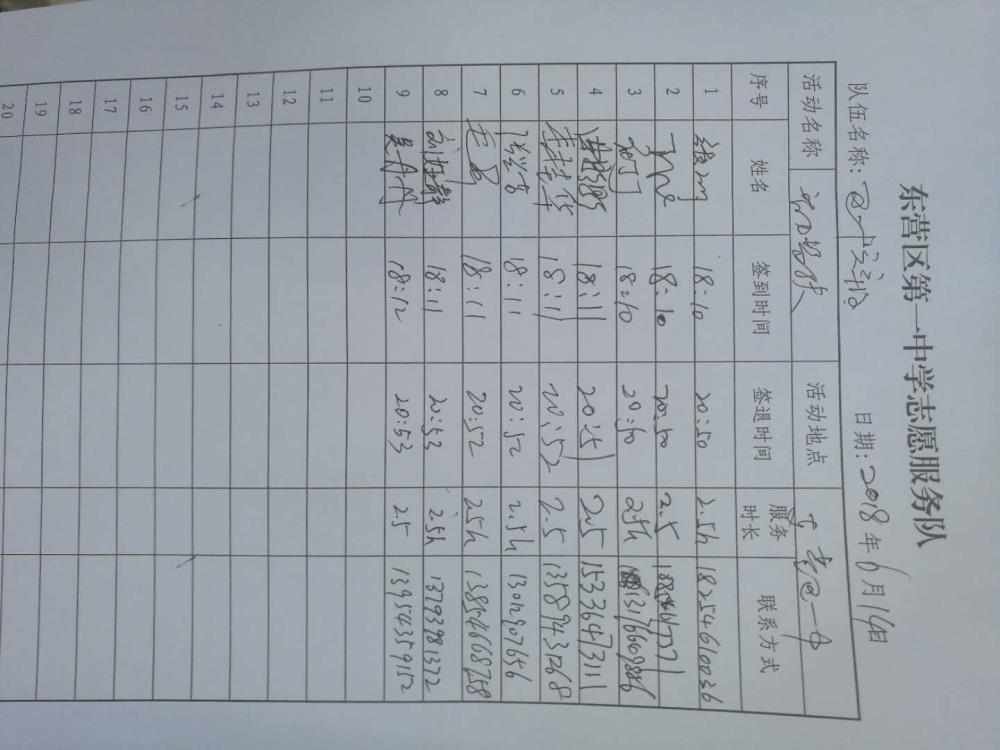 东营区第一中学志愿服务队
队伍名称: 日期: 2018年6月14日
活动名称 活动地点
序号 姓名 签到时间 签退时间 服务时长 联系方式
1 18:10 20:50 2.5h 18254610036
2 18:10 20:50 2.5
3 18:10 20:50 2.5h
4 18:11 20:51 2.5 15336473111
5 李志华 18:11 20:52 2.5 13589943268
6 18:11 20:52 2.5h 13012907656
7 18:11 20:52 2.5h 13854668758
8 18:11 20:53 2.5h 13793981372
9 吴丹丹 18:12 20:53 2.5 13954359152
10
11
12
13
14
15
16
17
18
19
20